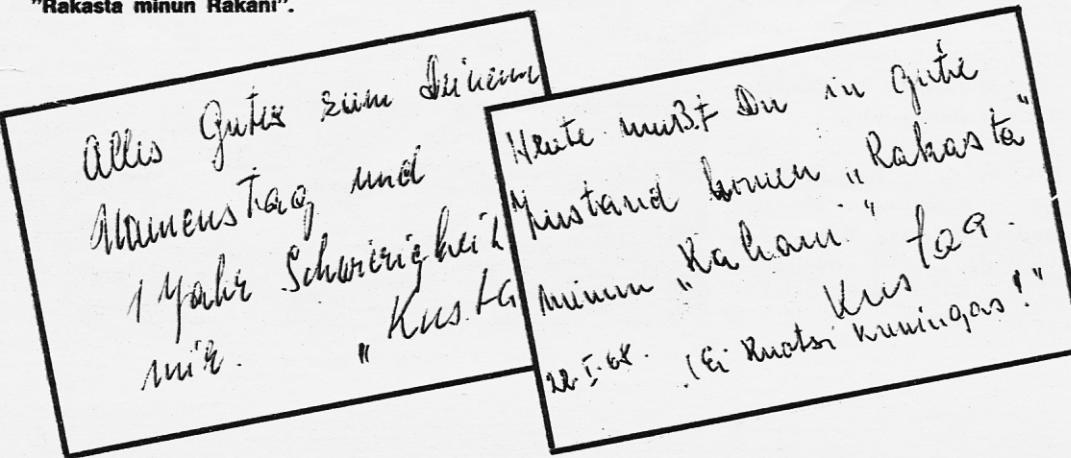 "Rakasta minun Rakani".
Alles Gutes zum Deinem
Namenstag und
1 Yahr Schwirigkeit
mir. "Kusta
Heute mußt Du in gute
Zustand komen "Rakasta"
minun "Rakani"
Kus taa.
22.I.68. (Ei Ruotsi kuningas!"